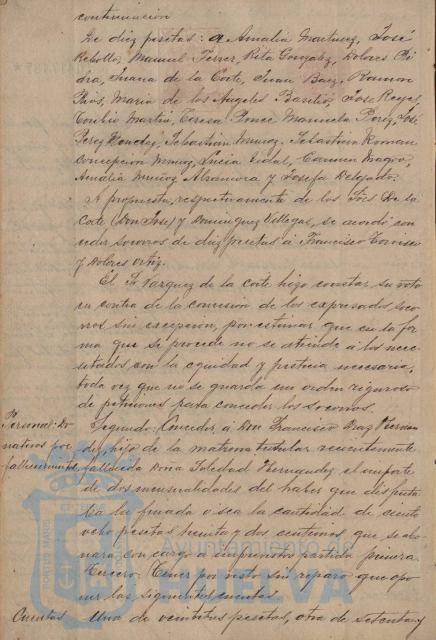 continuación
De diez pesetas: a Amalia Martinez, José
Rebollo, Manuel Ferrer, Rita Gonzalez, Dolores
dra, Juana de la Corte, Juan Baez, Ramon
Maria de los Angeles José Reyes,
Martin, Teresa Ponce Manuela Perez, José
Perez Sebastian Munoz, Sebastian Roman
Concepcion Muniz, Lucia Vidal, Carmen Magro,
Amalia Muñoz y Josefa Delgado.
A propuesta respectivamente de los Sres De la
Corte (Don José) y Dominguez Villegas, se acordó con
ceder socorros de diez pesetas á Francisco
y Dolores Ortiz.
El Sr Vazquez de la Corte hizo constar su voto
en contra de la concesión de los expresados soco
rros sin excepción, por estimar que en la for
ma que se procede no se atiende á los nece
sitados con la equidad y justicia necesaria,
toda vez que no se guarda un orden riguroso
de peticiones para conceder los socorros.
Personal: Do
nativos por
fallecimiento
Segundo: Conceder á Don Francisco Diaz Hernan
dez, hijo de la matrona titular recientemente
fallecida Doña Soledad Hernandez el importe
de dos mensualidades del haber que disfruta
ba la finada o sea la cantidad de ciento
ocho pesetas treinta y dos centimos que se abo
nará con cargo a la presente partida primera
Tercero: Tener por visto sin reparo que opo
ner las siguientes cuentas.
Cuentas
Una de veintitres pesetas, otra de setenta y
Ayuntamiento de
HUELVA